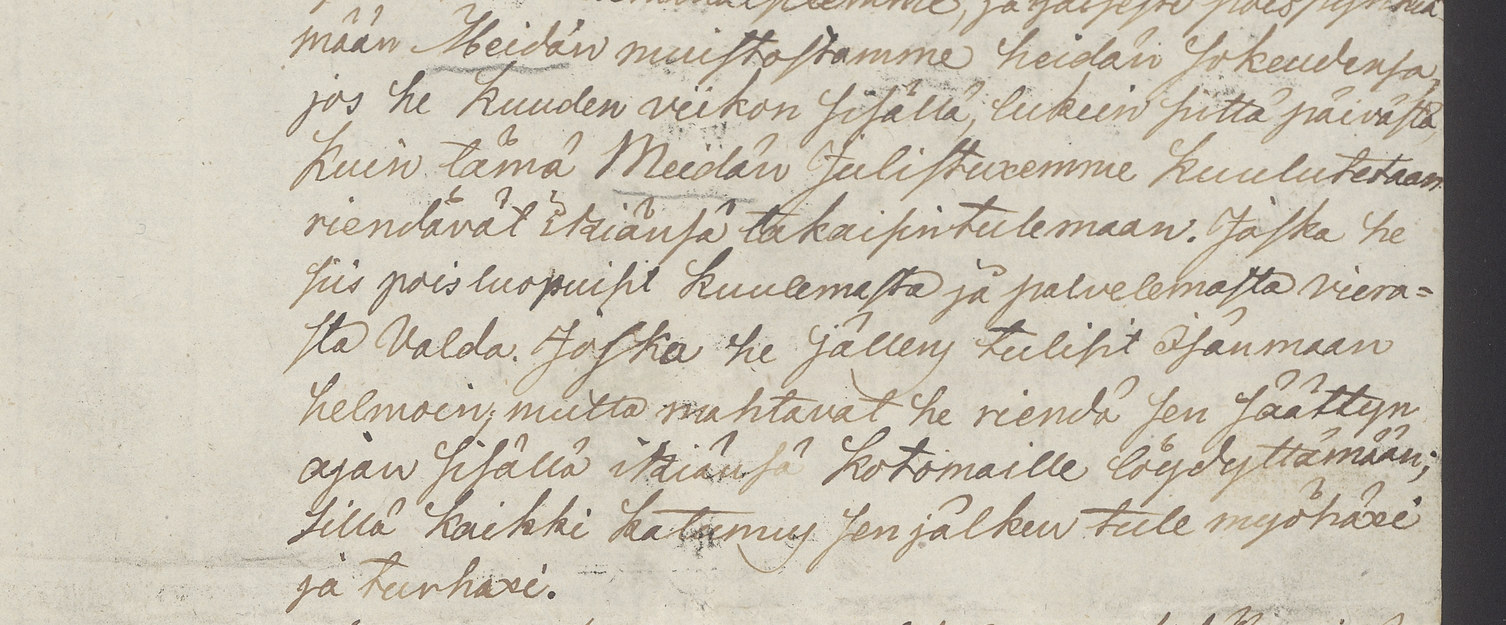 mään Meidän muistostamme heidän sokeudensa,
jos he kuuden viikon sisällä, lukein siitä päivästä
kuin tämä Meidän Julistuxemme kuulutetaan
riendävät itziänsä takaisintulemaan. Joska he
siis poisluopuisit kuulemasta ja palvelemasta viera=
sta Valda. Joska he jällens tulisit Isänmaan
helmoin; mutta mahtavat he riendä sen säättyn
ajan sisällä itziänsä kotomaille löydyttämään;
Sillä kaikki katumus sen jälken tule myöhäxi
ja turhaxi.